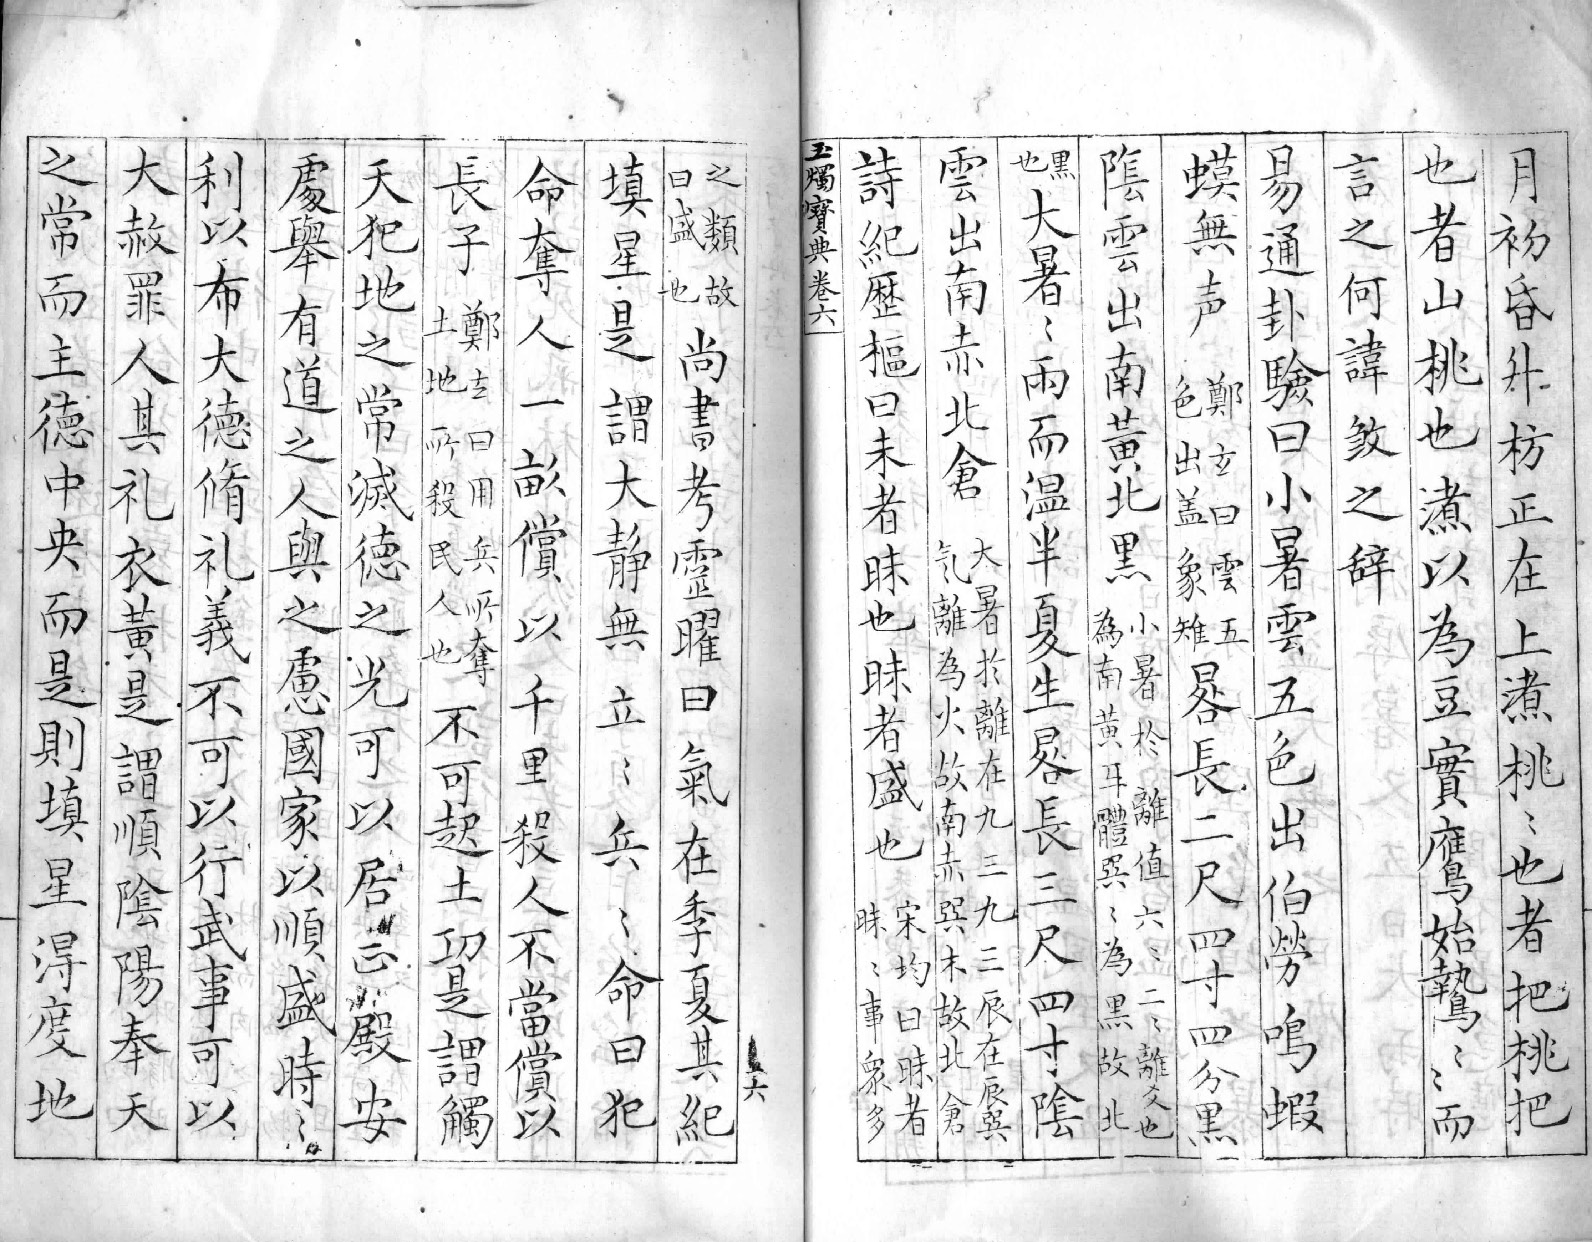 月初昏斗枋正在上煮桃〻也者把桃把
也者山桃也煮以為豆實鷹始鷙〻〻而
言之何諱煞之辞
易通卦驗曰小暑雲五色出伯勞鳴蝦
蟆無声鄭玄曰雲五色出盖象雉晷長二尺四寸四分黑
陰雲出南黄北黑小暑於離值六〻二〻離爻也為南黄耳體巽〻為黑故北
黑也大暑〻雨而温半夏生晷長三尺四寸陰
雲出南赤北倉大暑於離在九三九三辰在辰巽气離為火故南赤巽木故北倉
詩紀歴樞曰未者昧也昧者盛也宋均曰昧者昧〻事衆多
玉燭寶典卷六
六
之類故曰盛也尚書考霊曜曰氣在季夏其紀
填星是謂大静無立〻兵〻命曰犯
命奪人一畝償以千里殺人不當償以
長子鄭玄曰用兵所奪土地所殺民人也不可起土功是謂觸
天犯地之常滅德之光可以居正殿安
處舉有道之人與之慮國家以順盛時〻
利以布大德脩礼義不可以行武事可以
大赦罪人其礼衣黄是謂順陰陽奉天
之常而主德中央而是則填星得度地